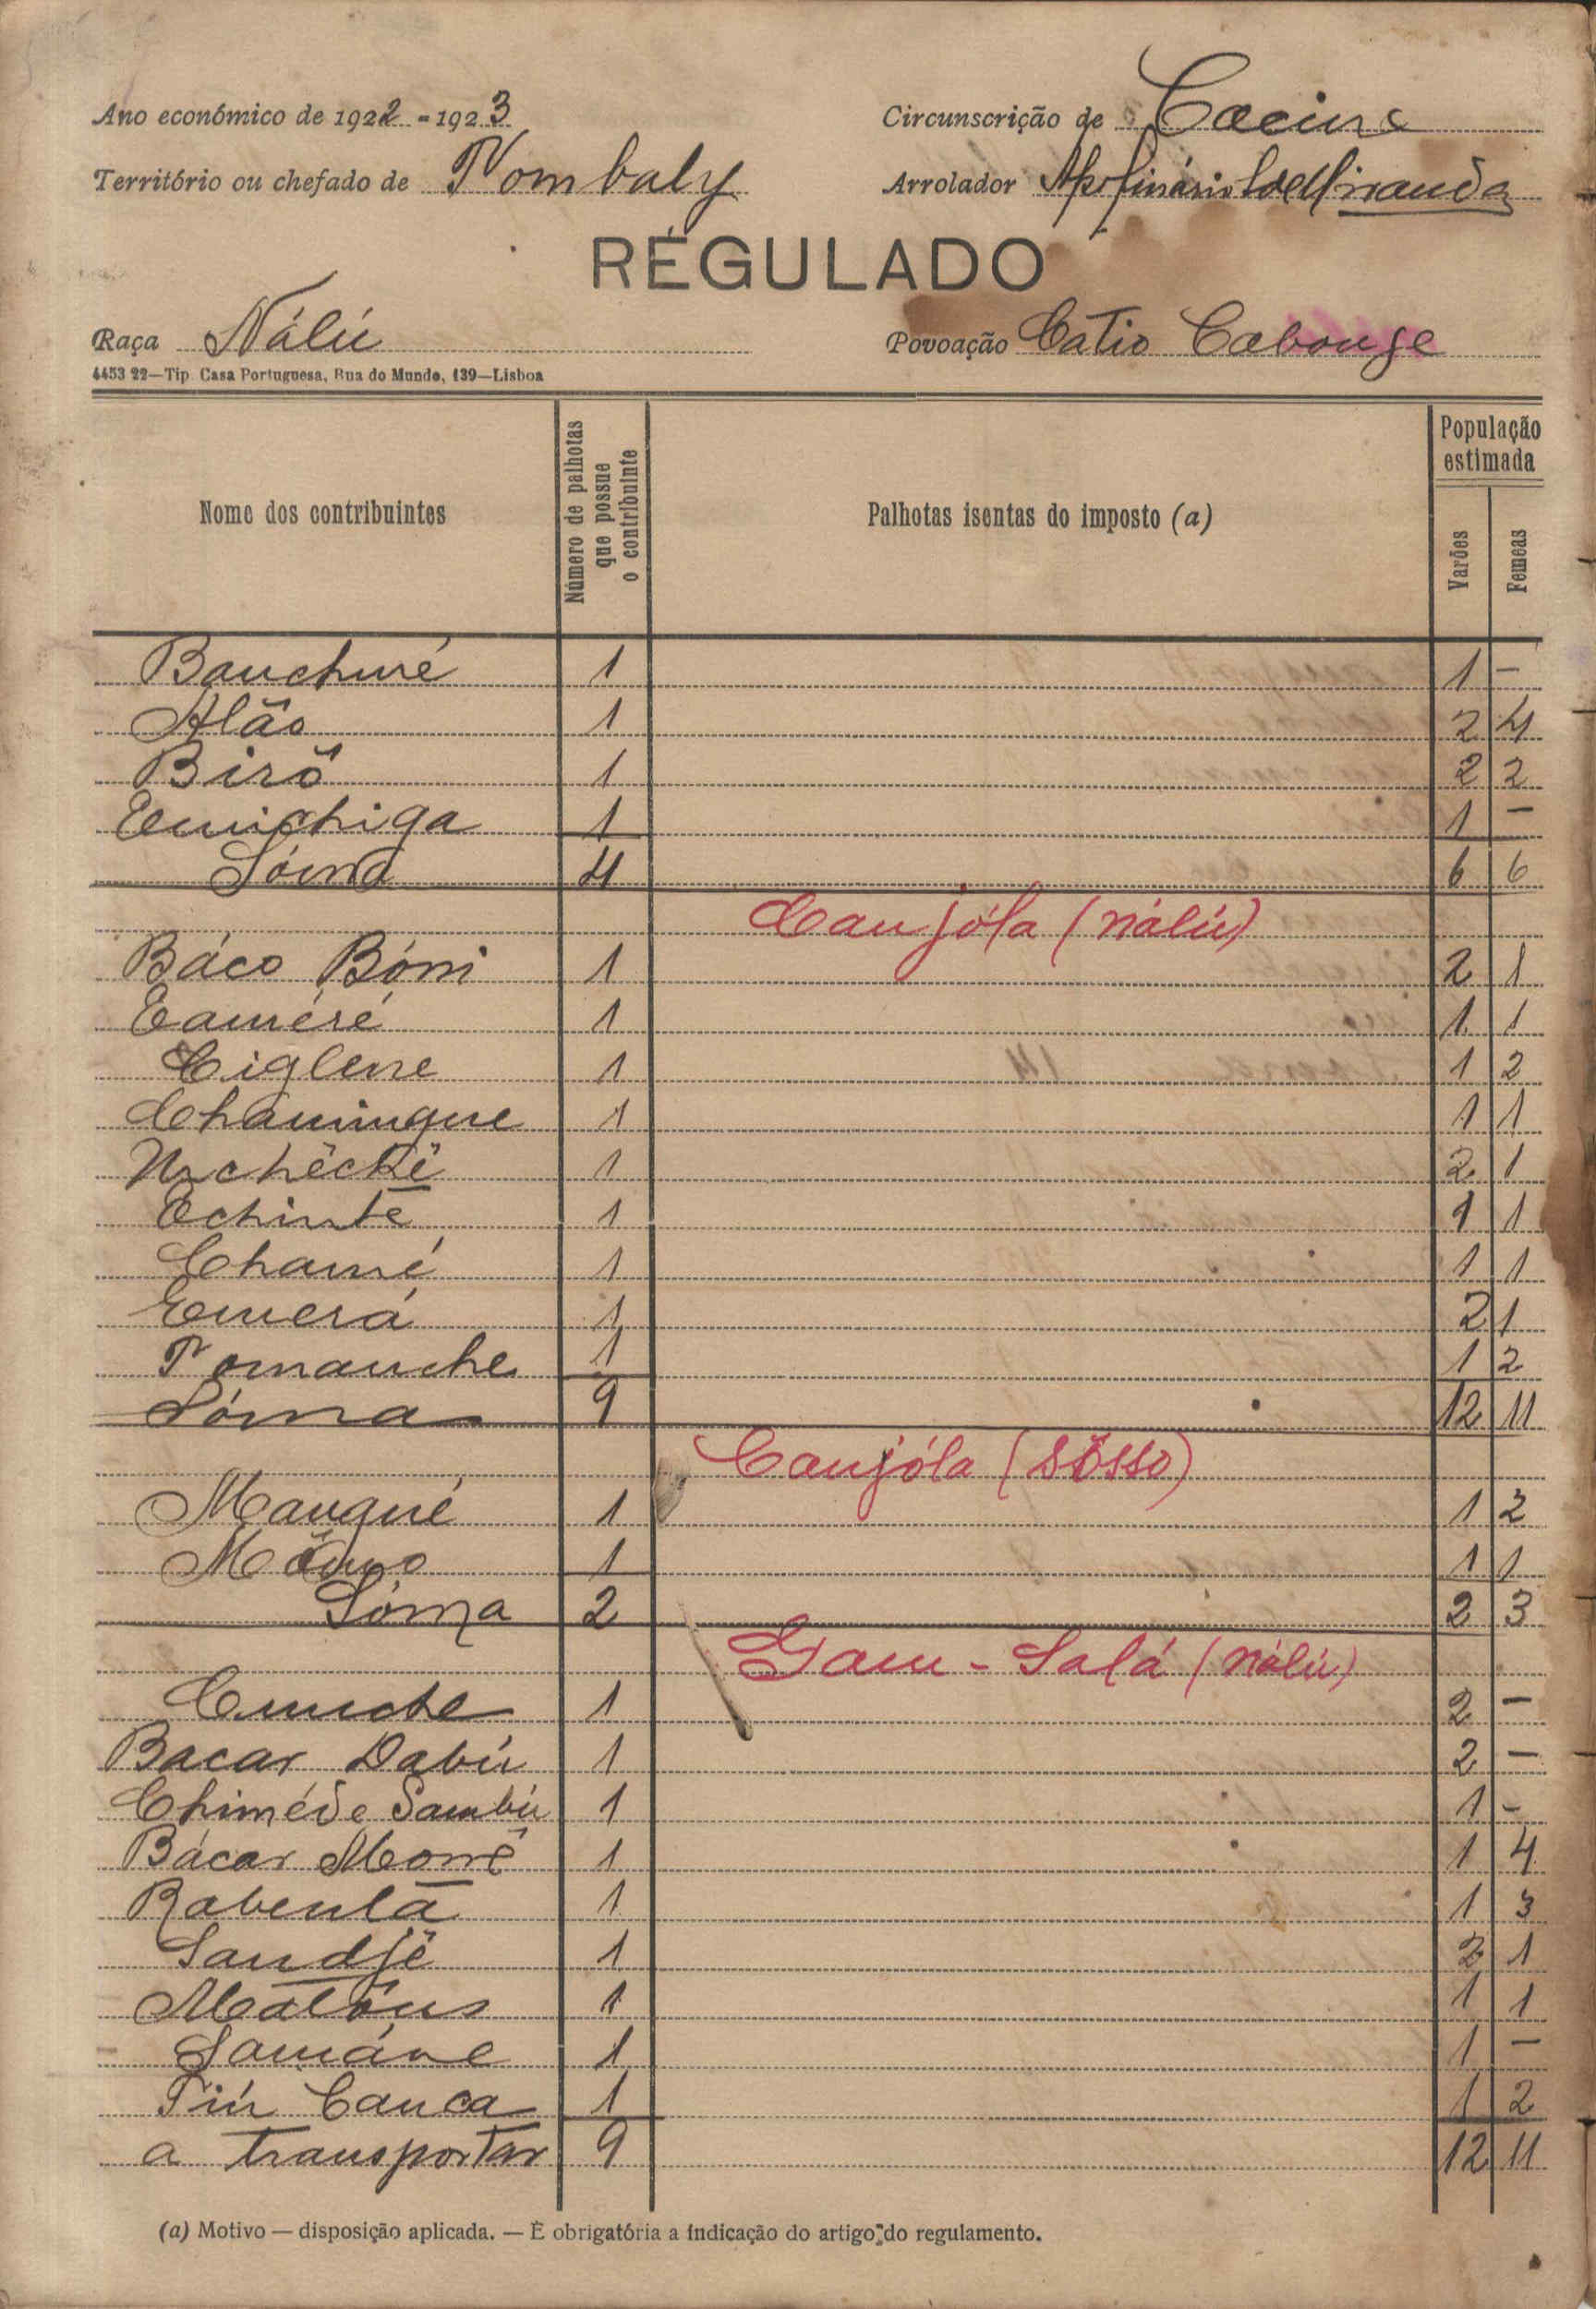 Ano económico de 1922 - 1923
Circunscrição de Cacine
Território ou chefado de Tombaly
Arrolador Apolinário de Miranda
RÉGULADO
Raça Nálú
Povoação Catio Cabouge
4453 22—Tip. Casa Portuguesa, Rua do Mundo, 139—Lisboa
Nome dos contribuintes
Número de palhotas que possue o contribuinte
Palhotas isentas do imposto (a)
População estimada
Varões
Femeas
Bauchuré 1 1 -
Alão 1 2 4
Birô 1 2 2
1 1 -
Sóma 4 6 6
Caujóla (nálú)
Báco Bóni 1 2 1
Caméré 1 1 1
Ciglene 1 1 2
Chamingue 1 1 1
Nzchêckê 1 2 1
Echinte 1 1 1
Chamé 1 1 1
Emerá 1 2 1
Tomanche 1 1 2
Sóma 9 12 11
Caujóla (sôsso)
Mangué 1 1 2
1 1 1
Sóma 2 2 3
Gam-Salá (nálú)
Cumche 1 2 -
Bacar Dabú 1 2 -
Chiméde Sambú 1 1 -
Bácar Momé 1 1 4
Rabenla 1 1 3
Sandjê 1 2 1
1 1 1
Samáne 1 1 -
Tiú Cauca 1 1 2
a transportar 9 12 11
(a) Motivo — disposição aplicada. — É obrigatória a indicação do artigo do regulamento.